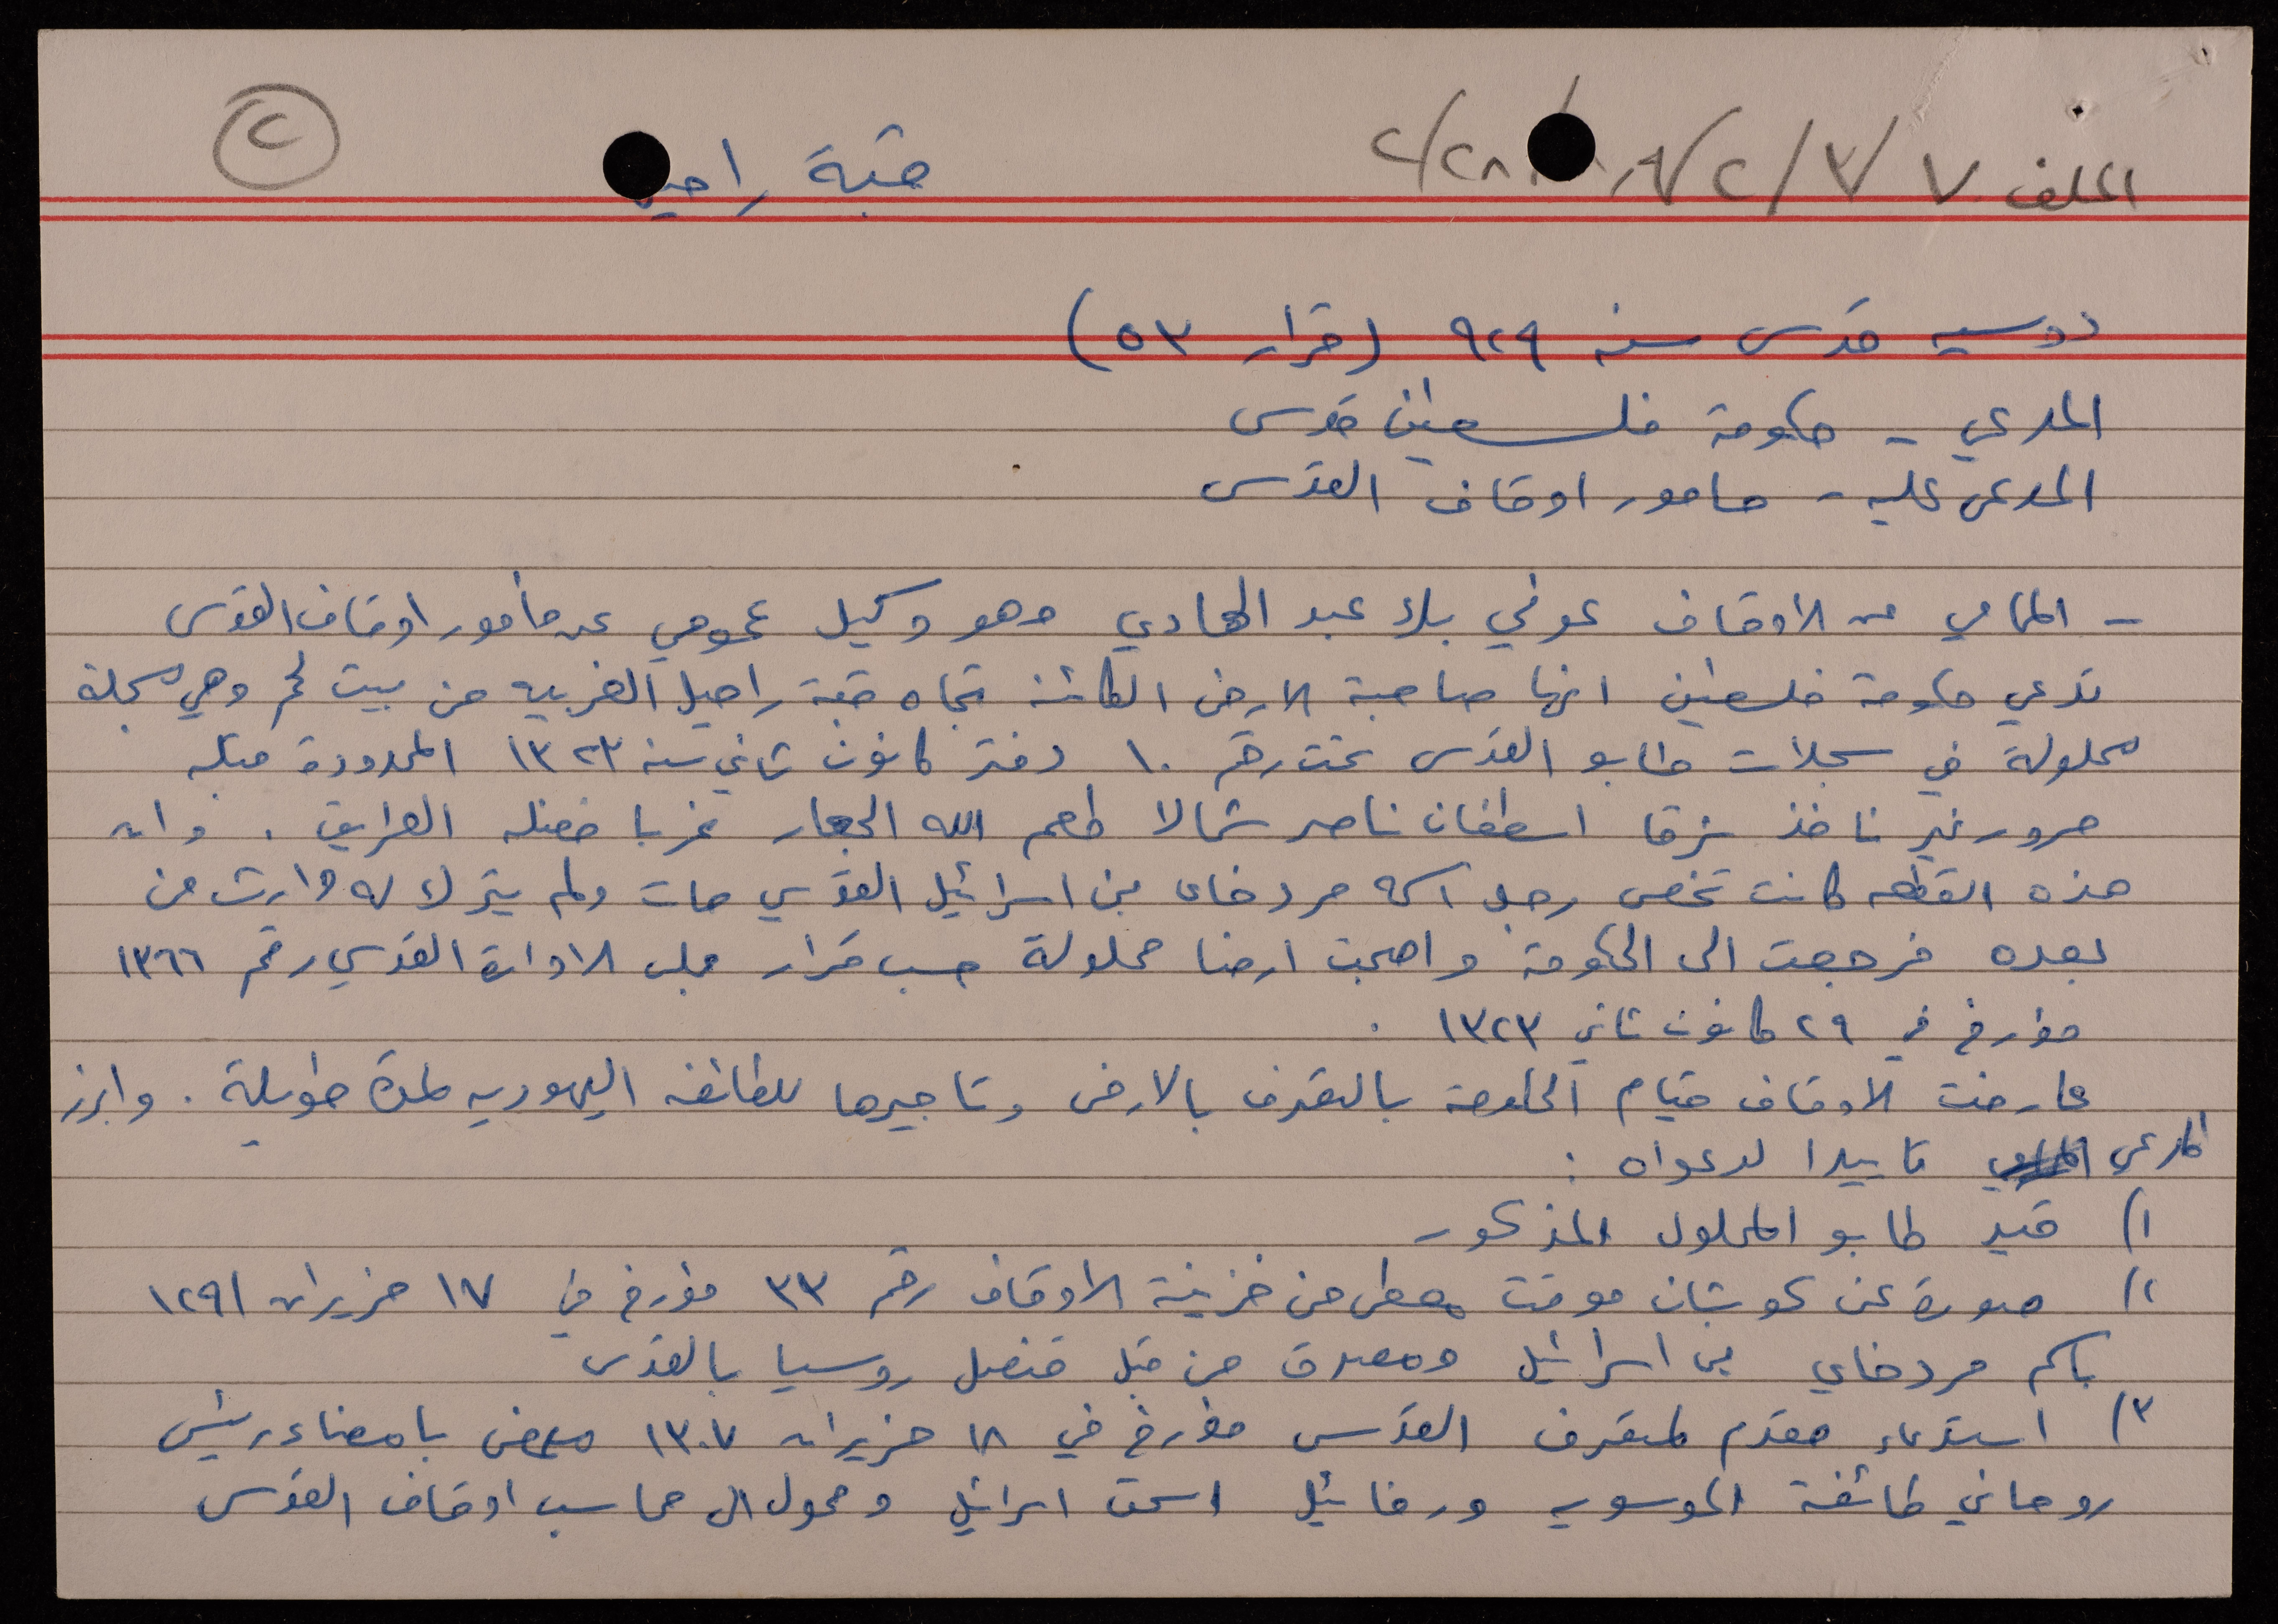 الملف ٧/٣/٢ ٢/٢٨
قبة راحيل
٢
دوسيه قدس سنه ٩٢٩ (قرار ٥٣)
المدعي - حكومة فلسطين قدس
المدعى عليه - مامور اوقاف القدس
- المحامي من الاوقاف عوني بك عبد الهادي وهو وكيل عمومي عن مأمور اوقاف القدس
تدعي حكومة فلسطين انها صاحبة الارض الكائنه تجاه قبة راحيل الغربيه من بيت لحم وهي مسجلة
محلولة في سجلات طابو القدس تحت رقم ١٠ دفتر كانون ثاني سنه ١٣٢٣ المحدودة قبله
مرور غير نافذ شرقا اسطفان ناصر شمالا طعم الله الحجار غربا الطريق . وان
هذه القطعه كانت تخص رجل اسمه مردخاى بن اسرائيل القدسي مات ولم يترك له وارث من
بعده فرجعت الى الحكومة واصبحت ارضا محلولة حسب قرار مجلس الادارة القدسي رقم ١٣٦٦
مؤرخ في ٢٩ كانون ثاني ١٣٢٣ .
عارضت الاوقاف قيام الحكومة بالتصرف بالارض وتاجيرها للطائفه اليهوديه لمدة طويلة . وابرز
المدعي تاييدا لدعواه :
١) قيد طابو المحلول المذكور
٢) صورة عن كوشان موقت معطى من خزينة الاوقاف رقم ٣٣ مؤرخ في ١٧ حزيران ١٢٩١
باسم مردخاي بن اسرائيل ومصدق من قبل قنصل روسيا بالقدس
٣) استدعاء مقدم لمتصرف القدس مؤرخ في ١٨ حزيران ١٣٠٧ ممضى بامضاء رئيس
روحاني طائفة الموسويه ورفائيل اسحق اسرائيل ومحول الى محاسب اوقاف القدس